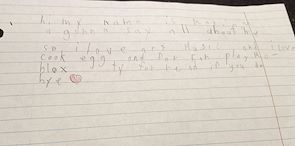 hi my name is
a gonna say all about my
so i love and Music and i love
cook egg and for fun play Ro-
blox ty for read if you do
bye